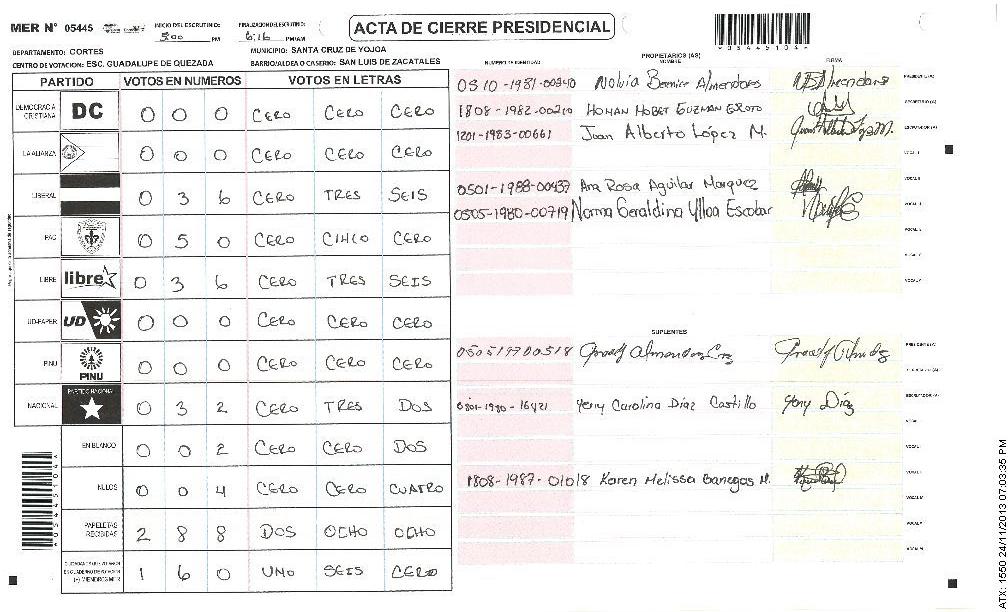 MER N° 05445
INICIO DEL ESCRUTINIO: 5:00 PM
FINALIZACION DEL ESCRUTINIO: 6:16 PM/AM
ACTA DE CIERRE PRESIDENCIAL
DEPARTAMENTO: CORTES
MUNICIPIO: SANTA CRUZ DE YOJOA
CENTRO DE VOTACION: ESC. GUADALUPE DE QUEZADA
BARRIO/ALDEA O CASERIO: SAN LUIS DE ZACATALES
PARTIDO VOTOS EN NUMEROS VOTOS EN LETRAS
DEMOCRACIA CRISTIANA DC 0 0 0 CERO CERO CERO
LA ALIANZA 0 0 0 CERO CERO CERO
LIBERAL 0 3 6 CERO TRES SEIS
PAC 0 5 0 CERO CINCO CERO
LIBRE libre 0 3 6 CERO TRES SEIS
UD-FAPER UD 0 0 0 CERO CERO CERO
PINU PINU 0 0 0 CERO CERO CERO
NACIONAL PARTIDO NACIONAL 0 3 2 CERO TRES DOS
EN BLANCO 0 0 2 CERO CERO DOS
NULOS 0 0 4 CERO CERO CUATRO
PAPELETAS RECIBIDAS 2 8 8 DOS OCHO OCHO
1 6 0 UNO SEIS CERO
PROPIETARIOS (AS)
NUMERO DE IDENTIDAD NOMBRE FIRMA
0510-1981-00340 Nolvia Bernice Almendares PRESIDENTE(A)
1808-1982-00210 SECRETARIO (A)
1201-1983-00661 Juan Alberto López M. ESCRUTADOR (A)
VOCAL I
0501-1988-00437 Ana Rosa Aguilar Marquez VOCAL II
0505-1980-00719 Norma Geraldina Ulloa Escobar
SUPLENTES
050519700518
0801-1980-16421 Yeny Carolina Diaz Castillo Yeny Díaz
1808-1987-01018 Karen Melissa Banegas M.
ATX: 1550 24/11/2013 07:03:35 PM